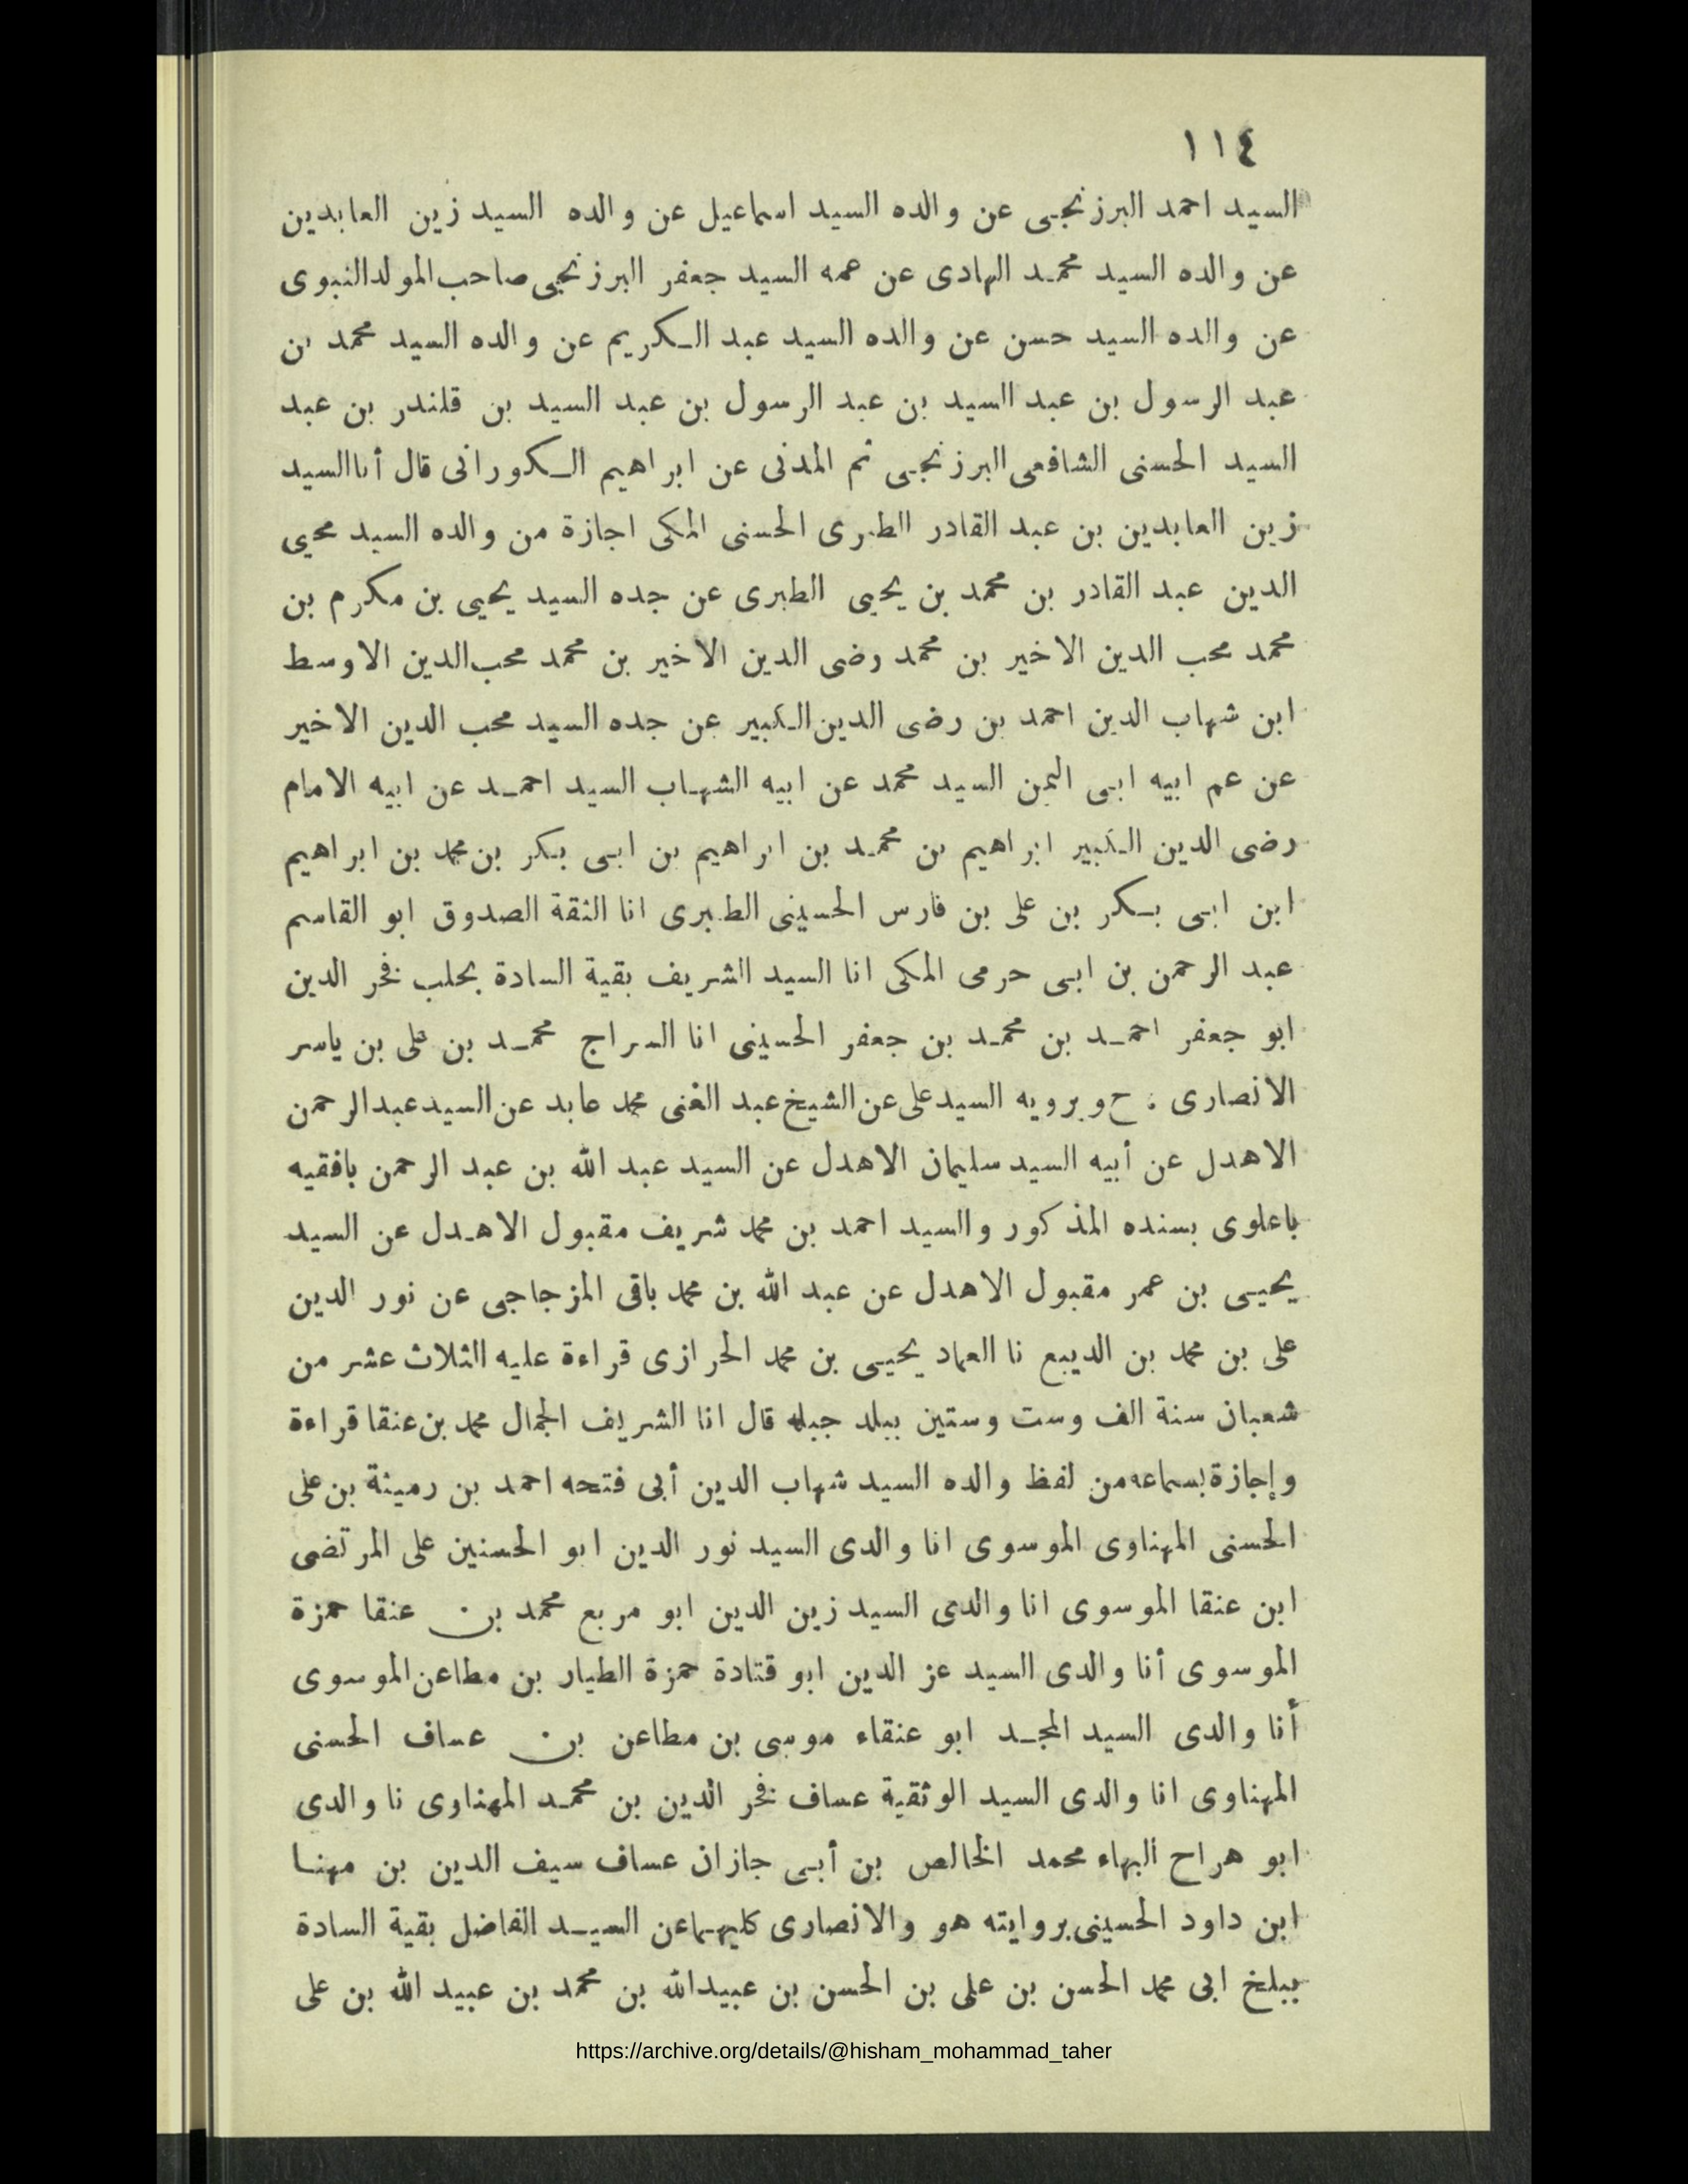 ١١٤
السيد احمد البرزنجى عن والده السيد اسماعيل عن والده السيد زين العابدين
عن والده السيد محمد الهادى عن عمه السيد جعفر البرزنجى صاحب المولد النبوى
عن والده السيد حسن عن والده السيد عبد الكريم عن والده السيد محمد بن
عبد الرسول بن عبد السيد بن عبد الرسول بن عبد السيد بن قلندر بن عبد
السيد الحسنى الشافعى البرزنجى ثم المدنى عن ابراهيم الكورانى قال أنا السيد
زين العابدين بن عبد القادر الطبرى الحسنى المكى اجازة من والده السيد محيى
الدين عبد القادر بن محمد بن يحيى الطبرى عن جده السيد يحيى بن مكرم بن
محمد محب الدين الاخير بن محمد رضى الدين الاخير بن محمد محب الدين الاوسط
ابن شهاب الدين احمد بن رضى الدين الكبير عن جده السيد محب الدين الاخير
عن عم ابيه ابى اليمن السيد محمد عن ابيه الشهاب السيد احمد عن ابيه الامام
رضى الدين الكبير ابراهيم بن محمد بن ابراهيم بن ابى بكر بن محمد بن ابراهيم
ابن ابى بكر بن على بن فارس الحسينى الطبرى انا الثقة الصدوق ابو القاسم
عبد الرحمن بن ابى حرمى المكى انا السيد الشريف بقية السادة بحلب فخر الدين
ابو جعفر احمد بن محمد بن جعفر الحسينى انا السراج محمد بن على بن ياسر
الانصارى : ح ويرويه السيد على عن الشيخ عبد الغنى محمد عابد عن السيد عبد الرحمن
الاهدل عن أبيه السيد سليمان الاهدل عن السيد عبد الله بن عبد الرحمن بافقيه
باعلوى بسنده المذكور والسيد احمد بن محمد شريف مقبول الاهدل عن السيد
يحيى بن عمر مقبول الاهدل عن عبد الله بن محمد باقى المزجاجى عن نور الدين
على بن محمد بن الديبع نا العماد يحيى بن محمد الحرازى قراءة عليه الثلاث عشر من
شعبان سنة الف وست وستين ببلد جبله قال انا الشريف الجمال محمد بن عنقا قراءة
وإجازة بسماعه من لفظ والده السيد شهاب الدين أبى فتحه احمد بن رميثة بن على
الحسنى المهناوى الموسوى انا والدى السيد نور الدين ابو الحسنين على المرتضى
ابن عنقا الموسوى انا والدى السيد زين الدين ابو مربع محمد بن عنقا حمزة
الموسوى أنا والدى السيد عز الدين ابو قتادة حمزة الطيار بن مطاعن الموسوى
أنا والدى السيد المجد ابو عنقاء موسى بن مطاعن بن عساف الحسنى
المهناوى انا والدى السيد الوثقية عساف فخر الدين بن محمد المهناوى نا والدى
ابو هراح البهاء محمد الخالص بن أبى جازان عساف سيف الدين بن مهنا
ابن داود الحسينى بروايته هو والانصارى كليهما عن السيد الفاضل بقية السادة
ببلخ ابى محمد الحسن بن على بن الحسن بن عبيد الله بن محمد بن عبيد الله بن على
https://archive.org/details/@hisham_mohammad_taher